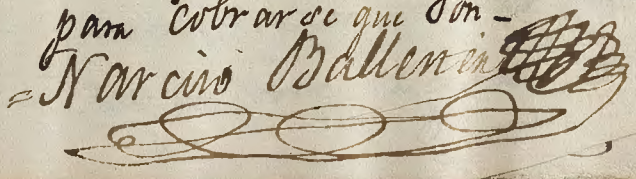 para cobrarse que son-
=Narciso Ballerin